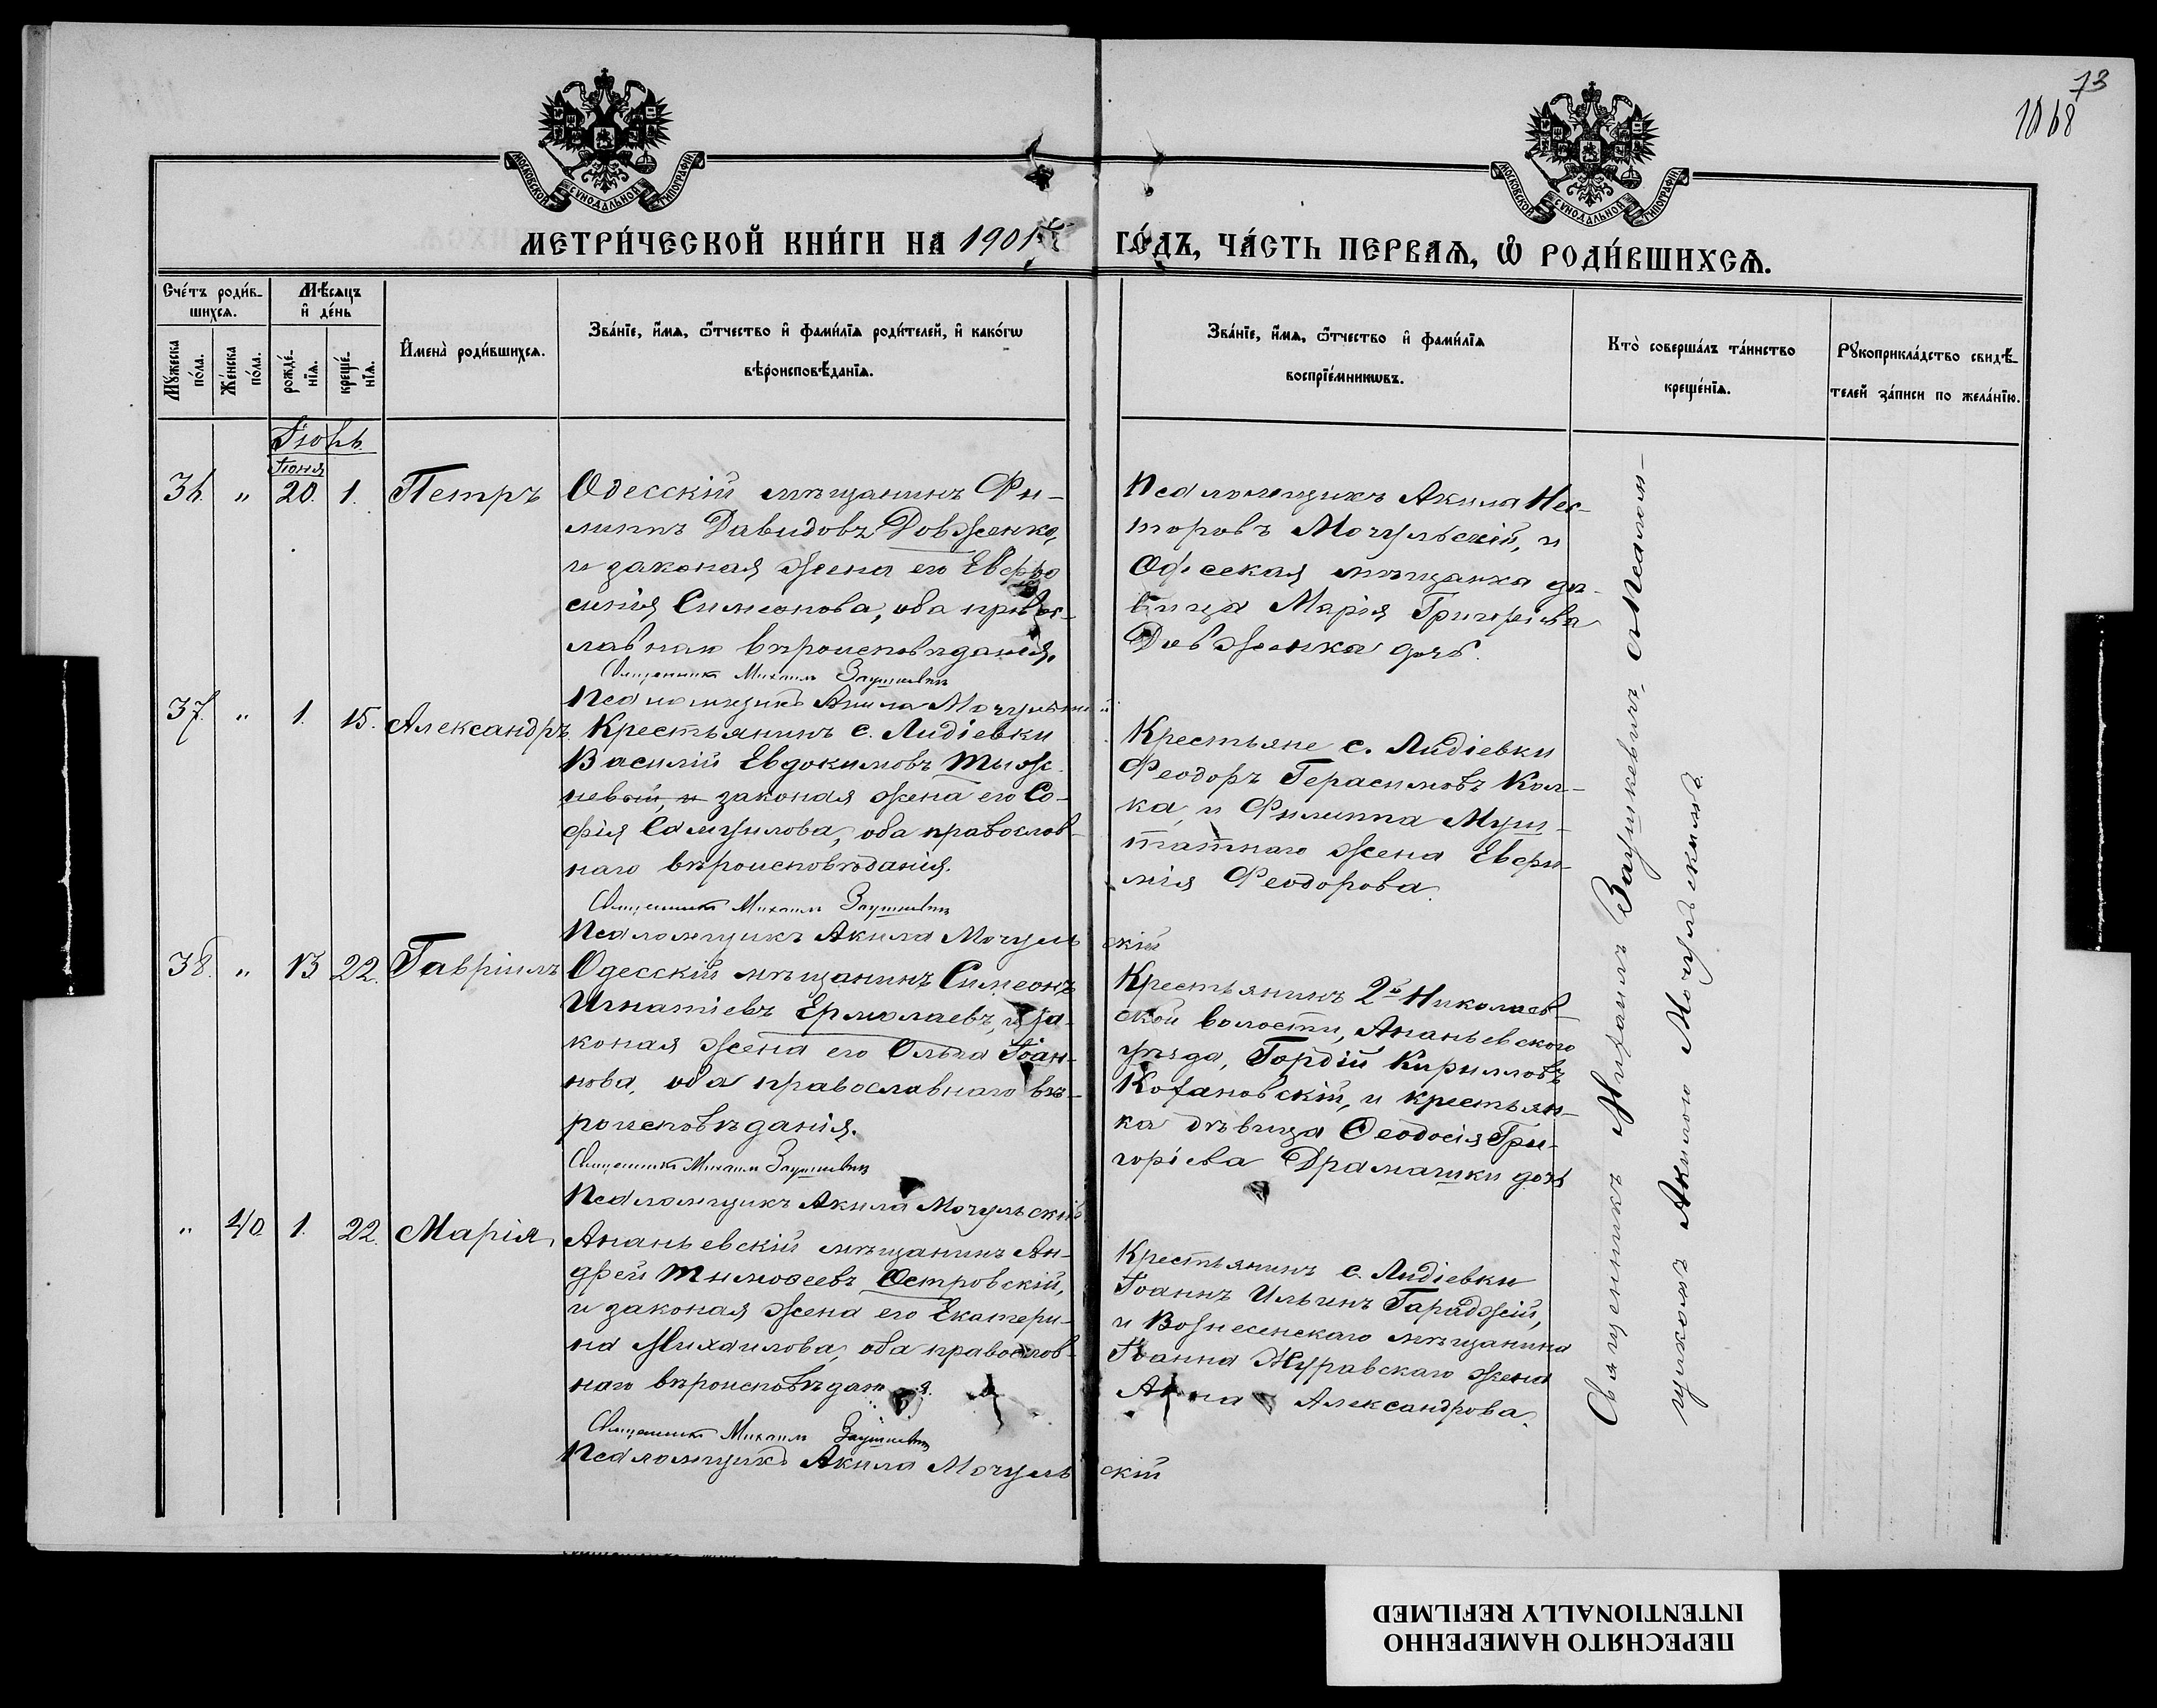 73
1068
МОСКОВСКОЙ СѴНОДАЛЬНОЙ ТИПОГРАФІИ
МОСКОВСКОЙ СѴНОДАЛЬНОЙ ТИПОГРАФІИ
МЕТРИ́ЧЕСКОЙ КНИ́ГИ НА 1901й
ГО́ДЪ, ЧА́СТЬ ПЕРВАѦ, Ѡ҆ РОДИ́ВШИХСѦ.
Сче́тъ роди́в-
шихсѧ.
Мꙋ́жеска
по́ла.
Же́нска
по́ла.
Мѣ́сѧцъ
и҆ де́нь
рожде́-
нїѧ.
креще́-
нїѧ.
И҆мена̀ роди́вшихсѧ.
Зва́нїе, и҆́мѧ, ѻ҆́тчество и҆ фами́лїѧ роди́телей, и҆ како́гѡ
вѣроисповѣ́данїѧ.
Зва́нїе, и҆́мѧ, ѻ҆́тчество и҆ фами́лїѧ
воспрїе́мникѡвъ.
Кто̀ соверша́лъ та́инство
креще́нїѧ.
Рꙋкоприкла́дство свидѣ́-
телей за́писи по жела́нїю.
Іюль.
Іюня
36. " 20. 1. Петръ
Одесскій мѣщанинъ Фи-
липпъ Давидовъ Довженко,
и законая жена его Евфро
синія Симеонова, оба правос-
лавнаго вѣроисповѣданія.
Священникъ Михаилъ Заушкевичъ
Псаломщикъ Акила Мочульскій
Псаломщикъ Акила Нес-
торовъ Мочульскій, и
Одесская мѣщанка дѣ-
вица Марія Григоріева
Довженка дочь.
37. " 1. 15. Александръ.
Крестьянинъ с. Лидіевки
Василій Евдокимовъ
невый, и законая жена его Со-
фія Самуилова, оба православ-
наго вѣроисповѣданія.
Священникъ Михаилъ Заушкевичъ
Псаломщикъ Акила Мочульскій
Крестьяне с. Лидіевки
Феодоръ Герасимовъ Кол-
ка, и Филиппа Муш-
татнаго жена Евфи-
мія Феодорова.
38. " 13 22. Гавріилъ
Одесскій мѣщанинъ Симеонъ
Игнатіевъ Ермолаевъ, и за-
коная жена его Ольга Іоан-
нова, оба православнаго вѣ-
роисповѣданія.
Священникъ Михаилъ Заушкевичъ
Псаломщикъ Акила Мочульскій
Крестьянинъ 2й Николаев-
ской волости, Ананьевскаго
уѣзда, Гордій Кирилловъ
Кохановскій, и крестьян-
ка дѣвица Ѳеодосія Гри-
горіева Драмашки дочь
" 40 1. 22. Марія,
Ананьевскій мѣщанинъ Ан-
дрей Тимоѳеевъ Островскій,
и законая жена его Екатери-
на Михаилова, оба православ-
наго вѣроисповѣданія.
Священникъ Михаилъ Заушкевичъ
Псаломщикъ Акила Мочульскій
Крестьянинъ с. Лидіевки
Іоаннъ Ильинъ Гараджій,
и Вознесенскаго мѣщанина
Іоанна Журавскаго жена
Анна Александрова.
Священникъ Михаилъ Заушкевичъ, съ Псалом-
щикомъ Акилою Мочульскимъ.
ПЕРЕСНЯТО НАМЕРЕННО
INTENTIONALLY REFILMED